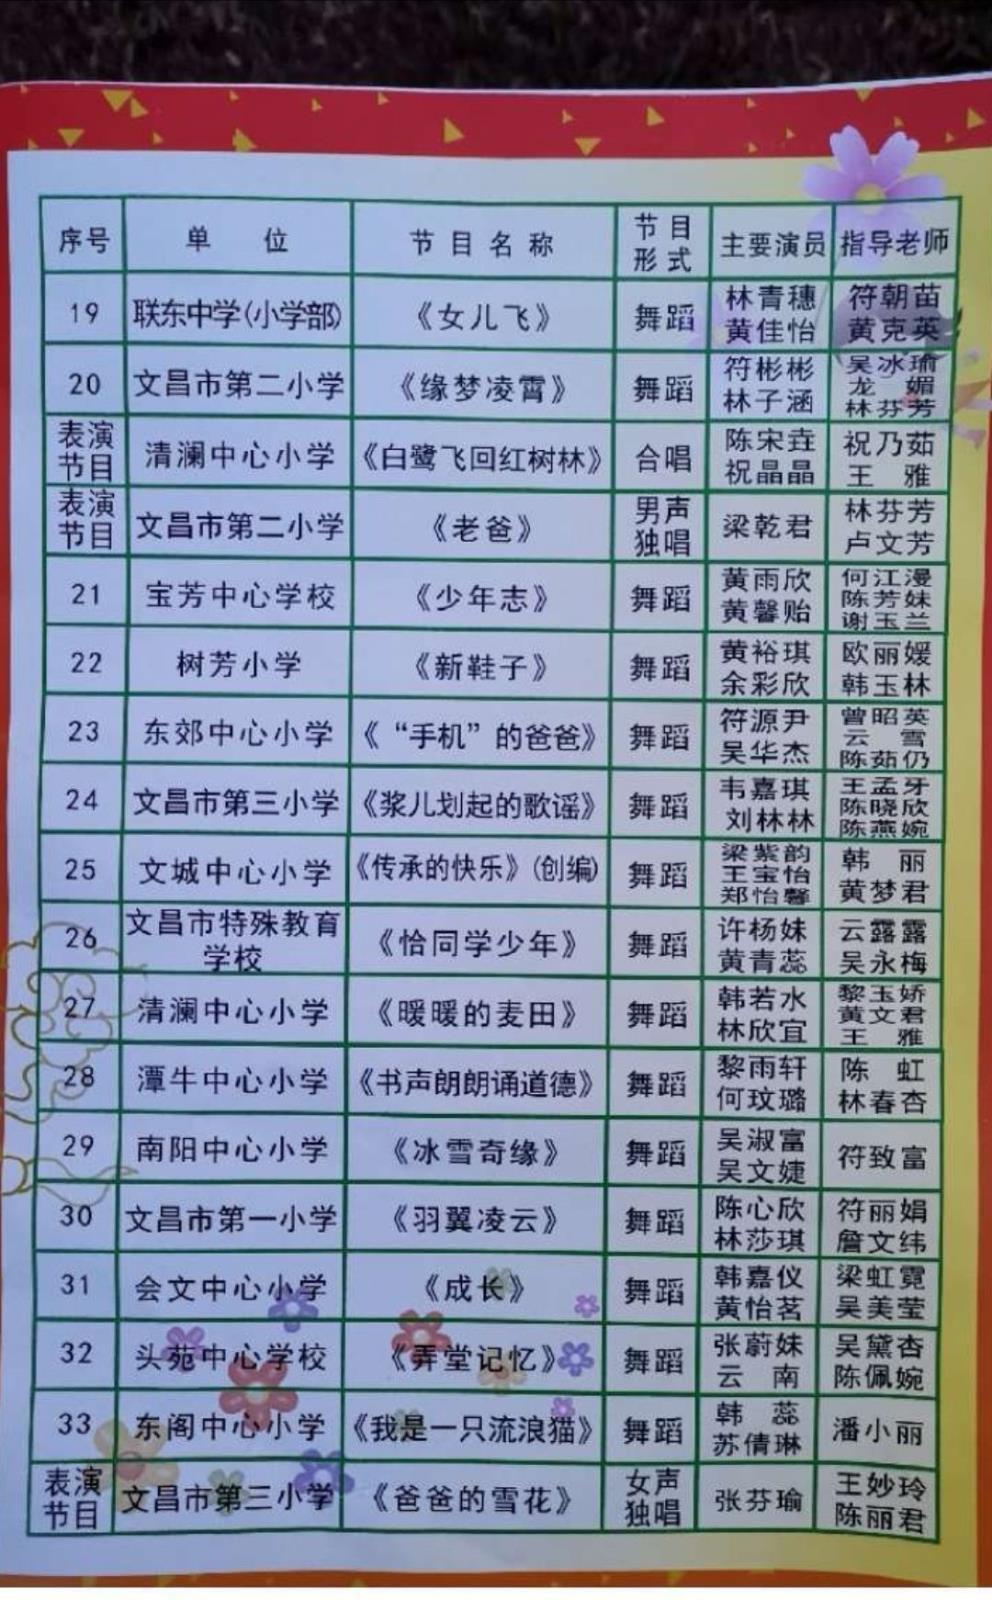 序号 单 位 节目名称 节目形式 主要演员 指导老师
19 联东中学(小学部) 《女儿飞》 舞蹈 林青穗 黄佳怡 符朝苗 黄克英
20 文昌市第二小学 《缘梦凌霄》 舞蹈 符彬彬 林子涵 吴冰瑜 龙 媚 林芬芳
表演节目 清澜中心小学 《白鹭飞回红树林》 合唱 陈宋垚 祝晶晶 祝乃茹 王 雅
表演节目 文昌市第二小学 《老爸》 男声独唱 梁乾君 林芬芳 卢文芳
21 宝芳中心学校 《少年志》 舞蹈 黄雨欣 黄馨贻 何江漫 陈芳妹 谢玉兰
22 树芳小学 《新鞋子》 舞蹈 黄裕琪 余彩欣 欧丽媛 韩玉林
23 东郊中心小学 《“手机”的爸爸》 舞蹈 符源尹 吴华杰 曾昭英 云 雪 陈茹仍
24 文昌市第三小学 《浆儿划起的歌谣》 舞蹈 韦嘉琪 刘林林 王孟牙 陈晓欣 陈燕婉
25 文城中心小学 《传承的快乐》(创编) 舞蹈 梁紫韵 王宝怡 郑怡馨 韩 丽 黄梦君
26 文昌市特殊教育学校 《恰同学少年》 舞蹈 许杨妹 黄青蕊 云露露 吴永梅
27 清澜中心小学 《暖暖的麦田》 舞蹈 韩若水 林欣宜 黎玉娇 黄文君 王 雅
28 潭牛中心小学 《书声朗朗诵道德》 舞蹈 黎雨轩 何玟璐 陈 虹 林春杏
29 南阳中心小学 《冰雪奇缘》 舞蹈 吴淑富 吴文婕 符致富
30 文昌市第一小学 《羽翼凌云》 舞蹈 陈心欣 林莎琪 符丽娟 詹文纬
31 会文中心小学 《成长》 舞蹈 韩嘉仪 黄怡茗 梁虹霓 吴美莹
32 头苑中心学校 《弄堂记忆》 舞蹈 张蔚妹 云 南 吴黛杏 陈佩婉
33 东阁中心小学 《我是一只流浪猫》 舞蹈 韩 蕊 苏倩琳 潘小丽
表演节目 文昌市第三小学 《爸爸的雪花》 女声独唱 张芬瑜 王妙玲 陈丽君